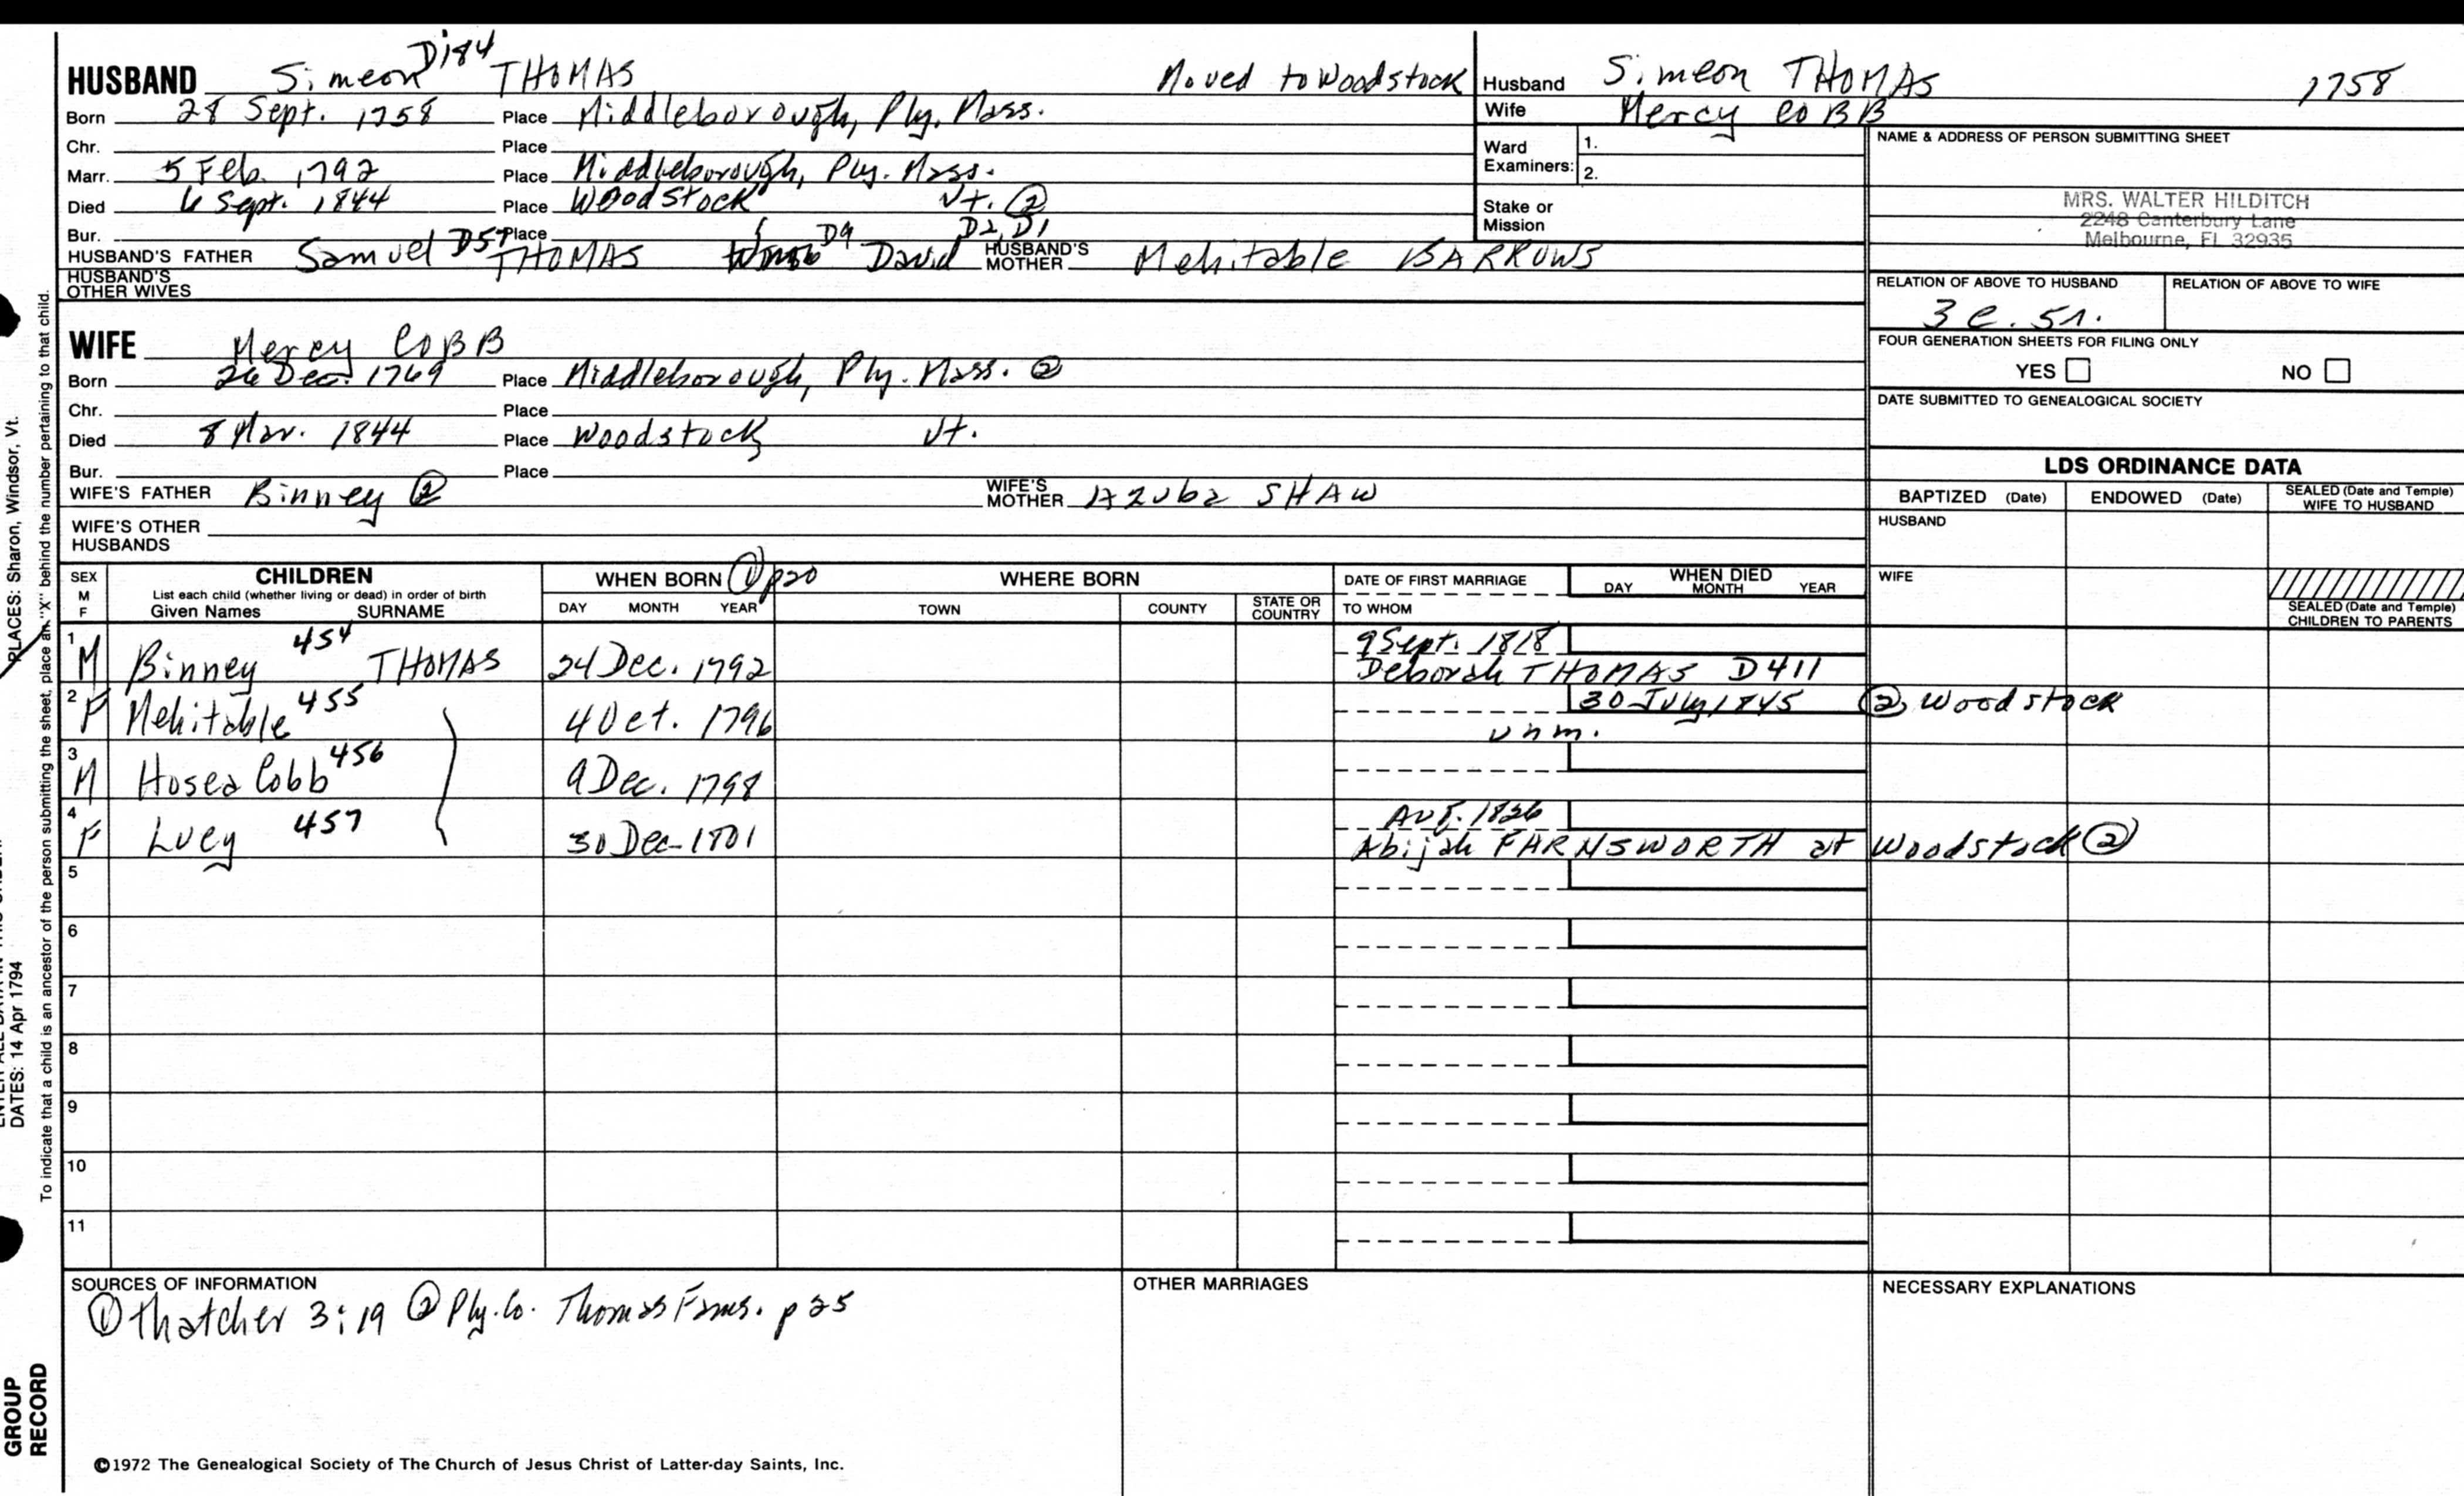 HUSBAND Simeon D184 THOMAS Moved to Woodstock
Born 28 Sept. 1758 Place Middleborough, Ply. Mass.
Chr. Place
Marr. 5 Feb. 1792 Place Middleborough, Ply. Mass.
Died 6 Sept. 1844 Place Woodstock Vt. ②
Bur. Place
HUSBAND'S FATHER Samuel D57 THOMAS D9 David D2, D1 HUSBAND'S MOTHER Mehitable BARROWS
HUSBAND'S OTHER WIVES
Husband Simeon THOMAS 1758
Wife Mercy COBB
Ward Examiners: 1.
2.
Stake or Mission
NAME & ADDRESS OF PERSON SUBMITTING SHEET
MRS. WALTER HILDITCH
2248 Canterbury Lane
Melbourne, FL 32935
RELATION OF ABOVE TO HUSBAND RELATION OF ABOVE TO WIFE
3 c. 5r.
FOUR GENERATION SHEETS FOR FILING ONLY
YES NO
DATE SUBMITTED TO GENEALOGICAL SOCIETY
WIFE Mercy COBB
Born 26 Dec. 1769 Place Middleborough, Ply. Mass. ②
Chr. Place
Died 8 Mar. 1844 Place Woodstock Vt.
Bur. Place
WIFE'S FATHER Binney ② WIFE'S MOTHER Azuba SHAW
WIFE'S OTHER HUSBANDS
LDS ORDINANCE DATA
BAPTIZED (Date) ENDOWED (Date) SEALED (Date and Temple) WIFE TO HUSBAND
HUSBAND
WIFE
SEALED (Date and Temple) CHILDREN TO PARENTS
SEX M F
CHILDREN
List each child (whether living or dead) in order of birth
Given Names SURNAME
WHEN BORN ① p20 WHERE BORN
DAY MONTH YEAR TOWN COUNTY STATE OR COUNTRY
DATE OF FIRST MARRIAGE
TO WHOM
WHEN DIED
DAY MONTH YEAR
1 M Binney 454 THOMAS 24 Dec. 1792 9 Sept. 1818
Deborah THOMAS D411
2 F Mehitable 455 4 Oct. 1796 30 July 1845 ② Woodstock
unm.
3 M Hosea Cobb 456 9 Dec. 1798
4 F Lucy 457 30 Dec 1801 Aug. 1826
Abijah FARNSWORTH at Woodstock ②
5
6
7
8
9
10
11
SOURCES OF INFORMATION
① Thatcher 3:19 ② Ply. Co. Thomas Fams. p 25
OTHER MARRIAGES
NECESSARY EXPLANATIONS
©1972 The Genealogical Society of The Church of Jesus Christ of Latter-day Saints, Inc.
PLACES: Sharon, Windsor, Vt.
DATES: 14 Apr 1794
To indicate that a child is an ancestor of the person submitting the sheet, place an "X" behind the number pertaining to that child.
GROUP
RECORD